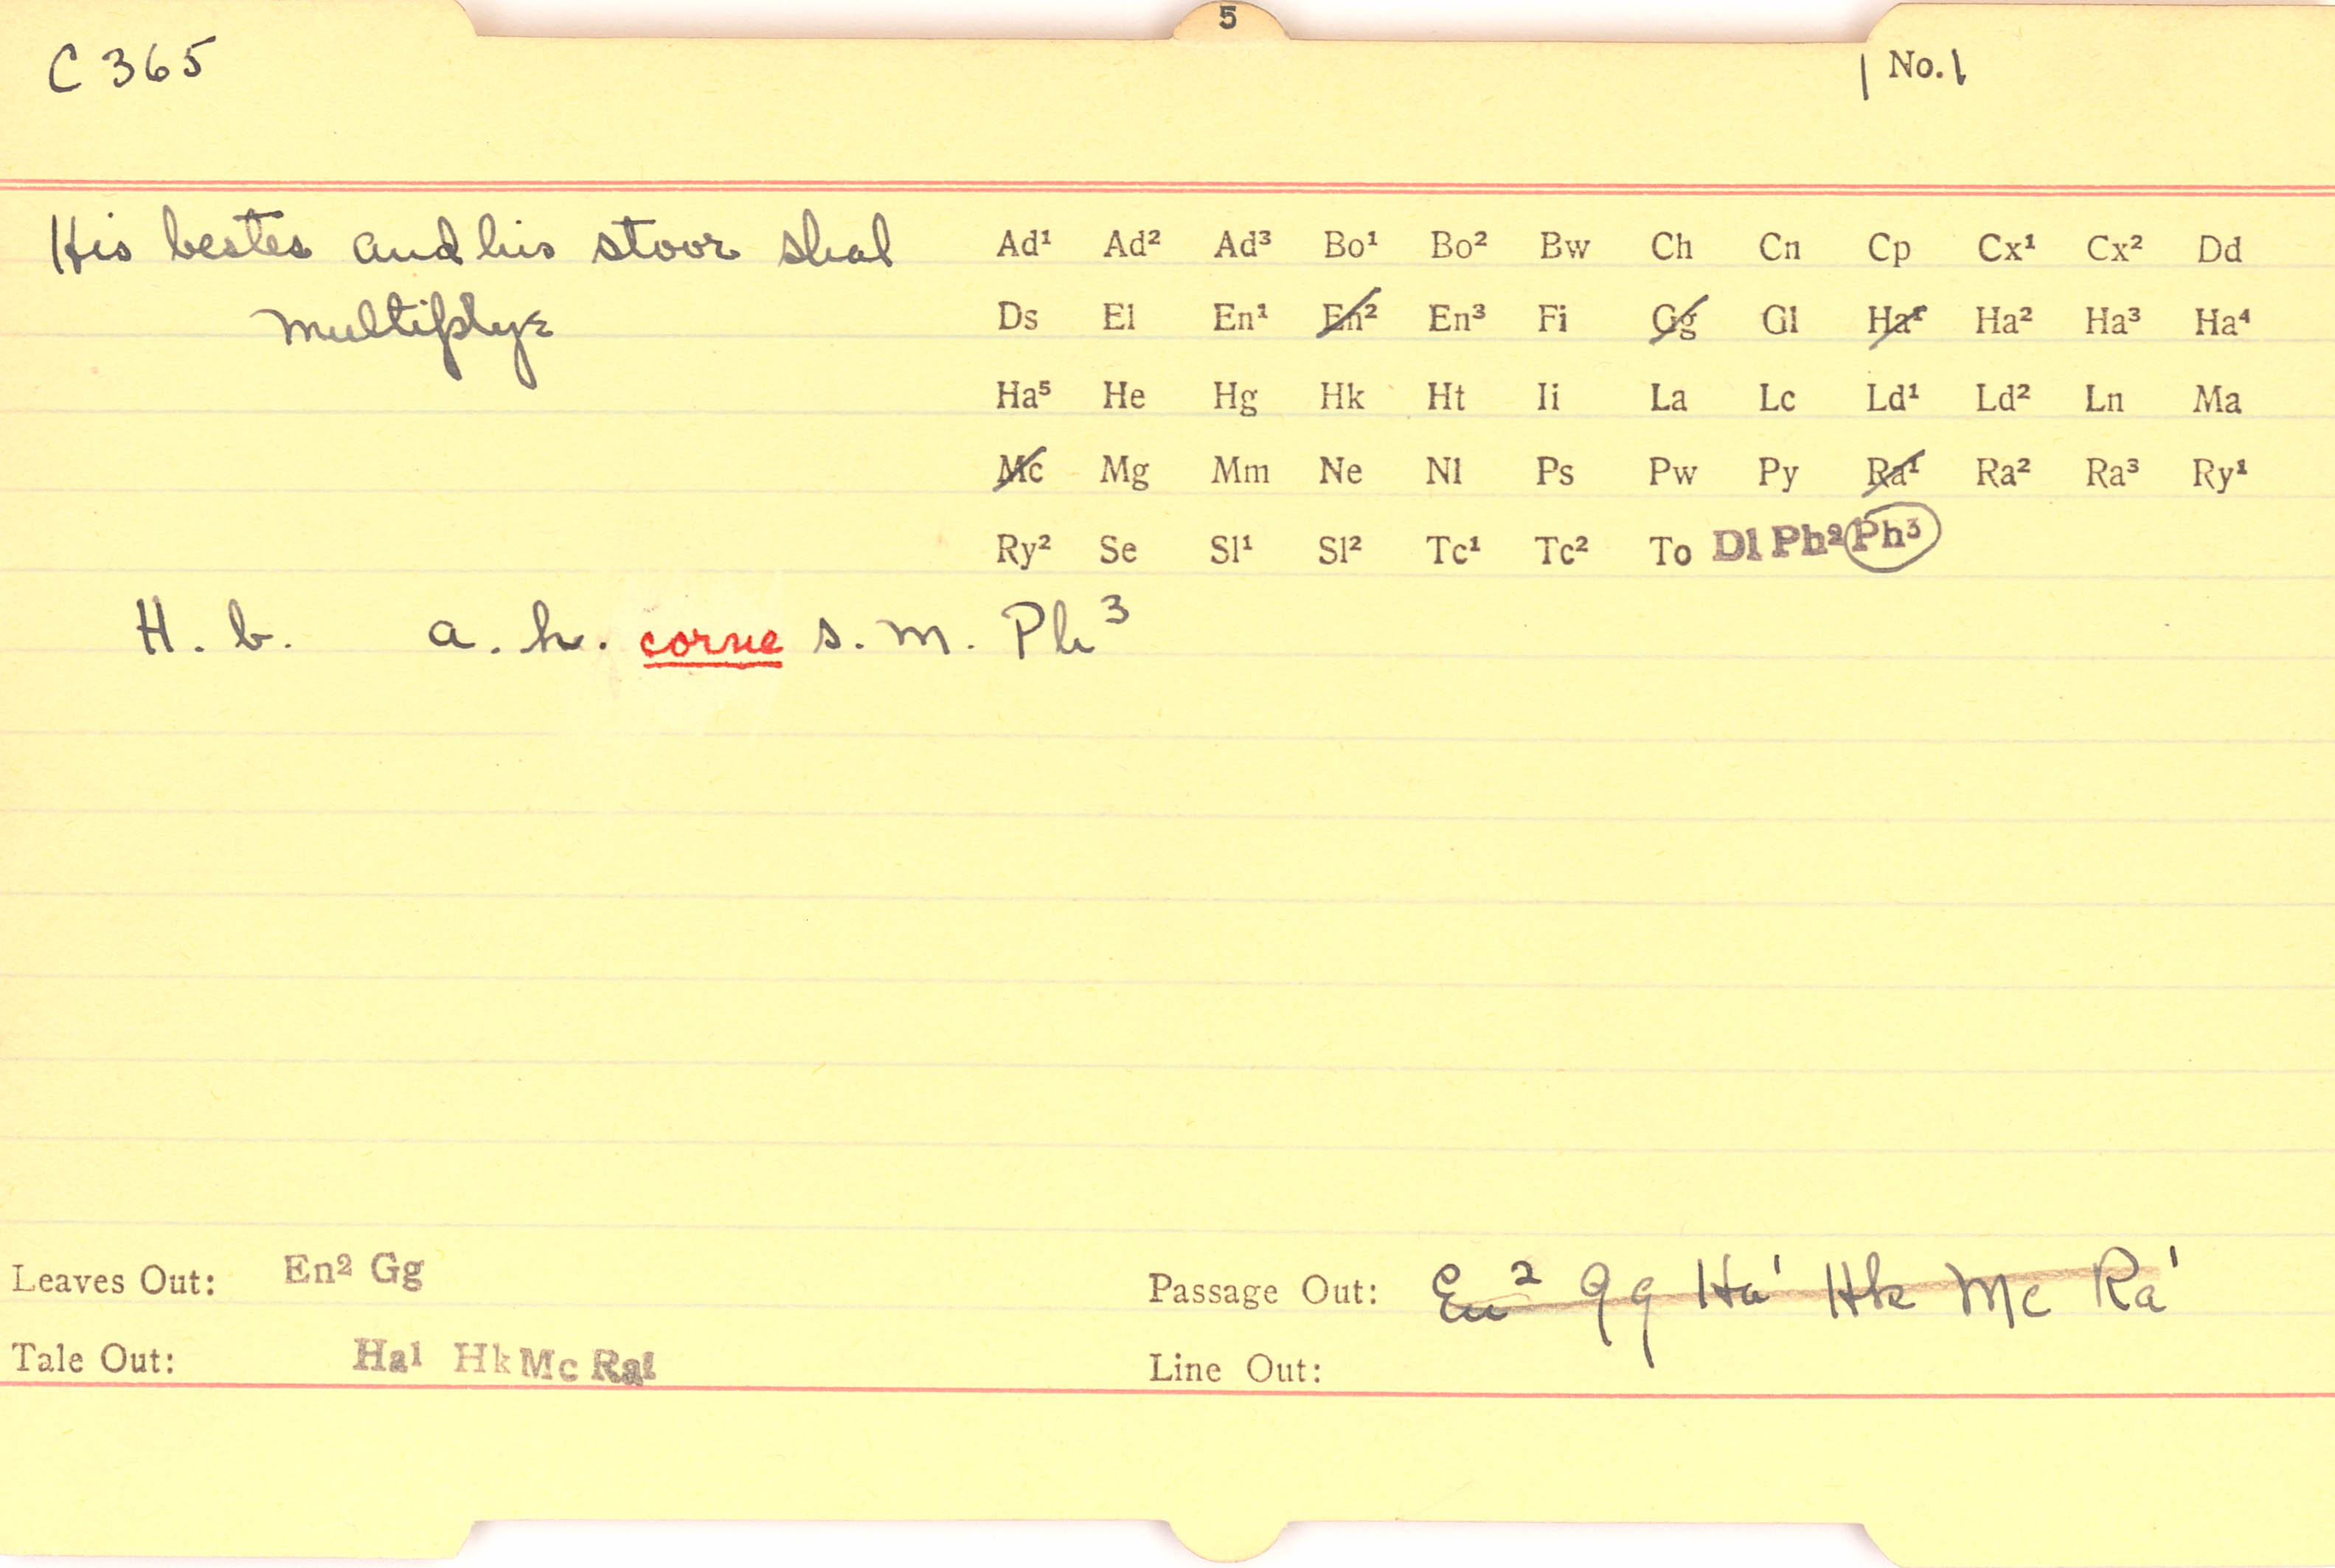 5
C 365
| No. 1
His bestes and his stoor shal
multiplye
Ad¹ Ad² Ad³ Bo¹ Bo² Bw Ch Cn Cp Cx¹ Cx² Dd
Ds El En¹ En² En³ Fi Gg Gl Ha¹ Ha² Ha³ Ha⁴
Ha⁵ He Hg Hk Ht Ii La Lc Ld¹ Ld² Ln Ma
Mc Mg Mm Ne Nl Ps Pw Py Ra¹ Ra² Ra³ Ry¹
Ry² Se Sl¹ Sl² Tc¹ Tc² To Dl Ph² Ph³
H. b. a. h. corne s. m. Ph³
Leaves Out: En² Gg
Passage Out: En² Gg Ha¹ Hk Mc Ra¹
Tale Out: Ha¹ Hk Mc Ra¹
Line Out: